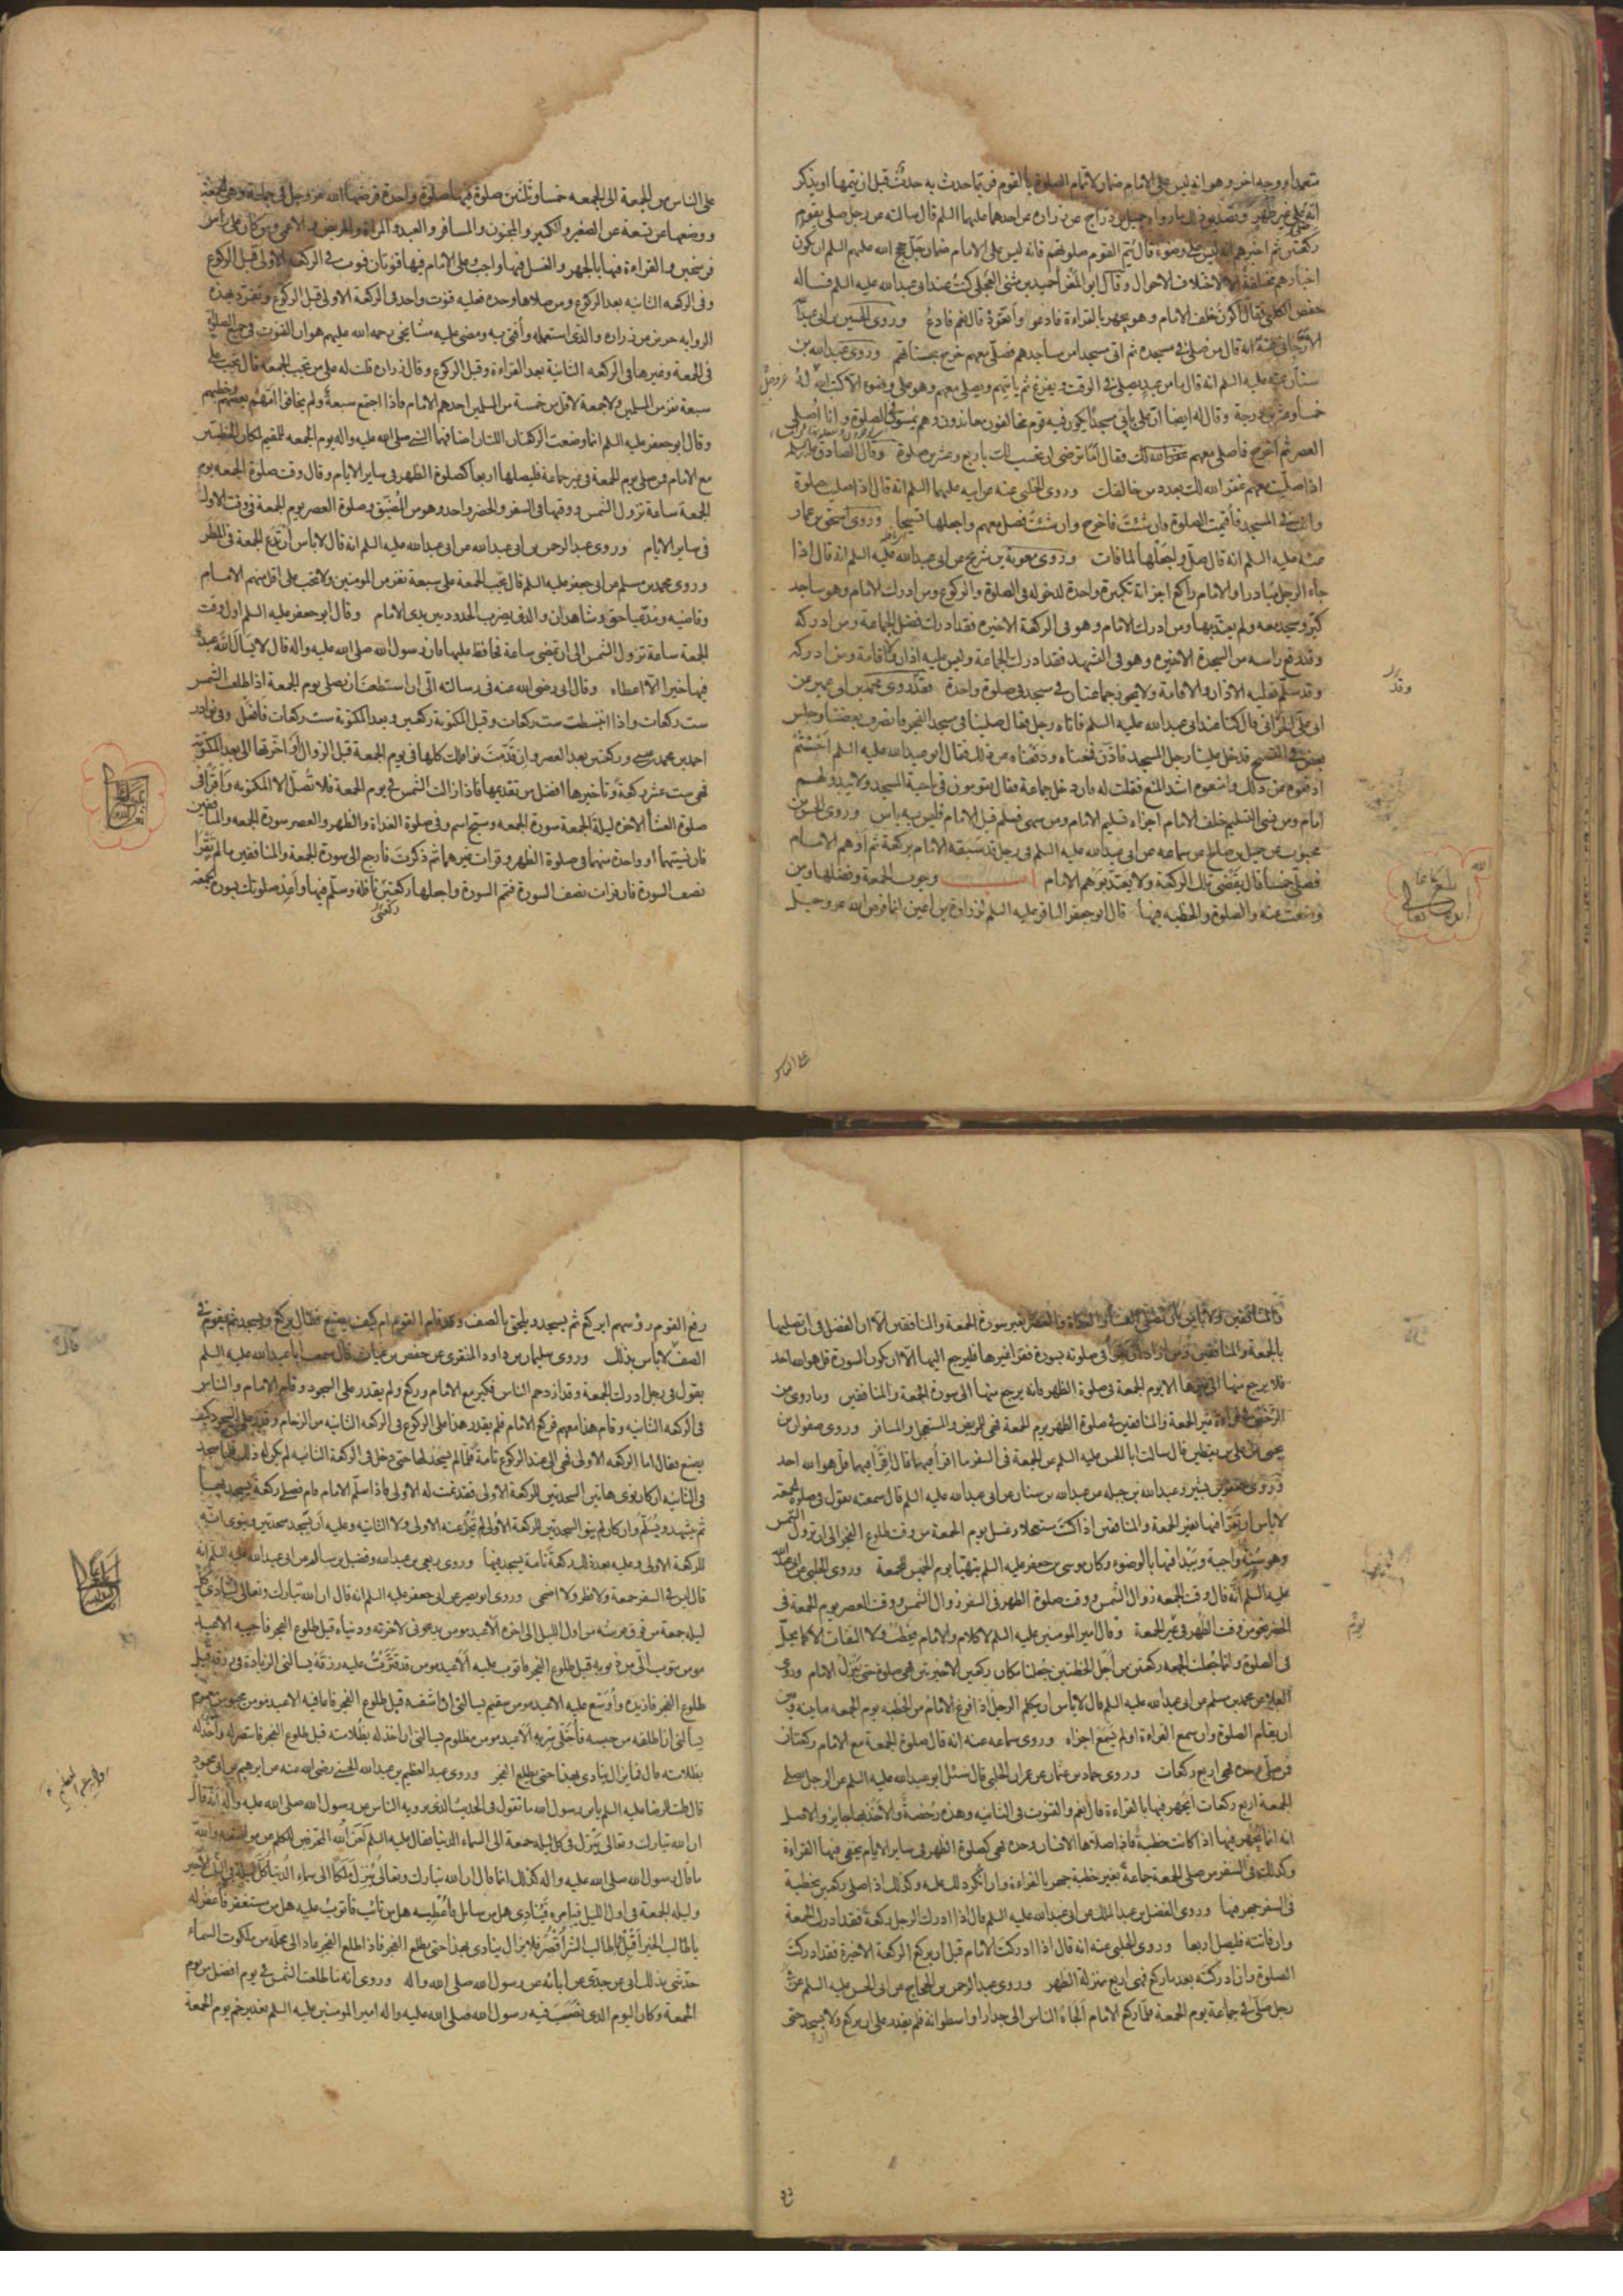 متعمدا ووجه اخر وهو انه ليس على الامام ضمان لاتمام الصلوة بالقوم فربما حدث به حدث قبل ان يتمها او يذكر
انه على غير طهر وتصديق ذلك ما رواه جميل بن دراج عن زرارة عن احدهما عليهما السلم قال سالته عن رجل صلى بقوم
ركعتين ثم اخبرهم انه ليس على وضوء قال يتم القوم صلوتهم فانه ليس على الامام ضمان جل حجج الله عليهم السلم ان يكون
اخبارهم مختلفة الا لاختلاف الاحوال وقال ابو المغرا حميد بن مثنى العجلى كنت عند ابى عبدالله عليه السلم فساله
حفص الكلبى فقال اكون خلف الامام وهو يجهر بالقراءة فادعو واتعوذ قال نعم فادع وروى الحسين بن ابى عبدالله
الارجانى عنه انه قال من صلى فى مسجده ثم اتى مسجدا من مساجدهم فصلى معهم خرج بحسناتهم وروى عبدالله بن
سنان عنه عليه السلم انه قال ما من عبد يصلى فى الوقت ويفرغ ثم ياتيهم ويصلى معهم وهو على وضوء الا كتب الله له عز وجل
خمسا وعشرين درجة وقال له ايضا ان على بابى مسجدا يكون فيه قوم مخالفون معاندون وهم يمسون فى الصلوة وانا اصلى
العصر ثم اخرج فاصلى معهم فقال اما ترضى ان تحسب لك باربع وعشرين صلوة وقال الصادق عليه السلم
اذا صليت معهم غفر الله لك بعدد من خالفك وروى الحلبى عنه عن ابيه عليهما السلم انه قال اذا صليت صلوة
وانت فى المسجد فاقيمت الصلوة وان شئت فاخرج وان شئت فصل معهم واجعلها تسبيحا وروى اسحق بن عمار
عنه عليه السلم انه قال صل واجعلها لما فات وروى معوية بن شريح عن ابى عبدالله عليه السلم انه قال اذا
جاء الرجل مبادرا والامام راكع اجزاته تكبيرة واحدة لدخوله فى الصلوة والركوع ومن ادرك الامام وهو ساجد
كبر وسجد معه ولم يعتد بها ومن ادرك الامام وهو فى الركعة الاخيره فقد ادرك فضل الجماعة ومن ادركه
وقد رفع راسه من السجدة الاخيره وهو فى التشهد فقد ادرك الجماعة وليس عليه اذان ولا اقامة ومن ادركه
وقد سلم فعليه الاذان والاقامة ولا يجوز جماعتان فى مسجد فى صلوة واحدة فقد روى محمد بن ابى عمير عن
ابى على الحرانى قال كنا عند ابى عبدالله عليه السلم فاتاه رجل فقال صلينا فى مسجد الفجر فانصرف بعضنا وجلس
بعض فى التسبيح فدخل علينا رجل المسجد فاذن فمنعناه ودفعناه عن ذلك فقال ابو عبدالله عليه السلم احسنتم
ادفعوه عن ذلك وامنعوه اشد المنع فقلت له فان دخل جماعة فقال يقومون فى ناحية المسجد ولا يبدو لهم
امام ومن نسى التسليم خلف الامام اجزاه تسليم الامام ومن سهى فسلم قبل الامام فليس به باس وروى الحسن بن
محبوب عن جميل بن صالح عن سماعه عن ابى عبدالله عليه السلم فى رجل قد سبقه الامام بركعة ثم اوهم الامام
فصلى خمسا قال يقضى تلك الركعة ولا يعتد بوهم الامام باب وجوب الجمعة وفضلها ومن
وضعت عنه والصلوة والخطبه فيها قال ابو جعفر الباقر عليه السلم لزرارة بن اعين انما فرض الله عز وجل
على الناس من الجمعة الى الجمعه خمسا وثلثين صلوة فيها صلوة واحدة فرضها الله عز وجل فى جماعة وهى الجمعة
ووضعها عن تسعة عن الصغير والكبير والمجنون والمسافر والعبد والمراة والمريض والاعمى ومن كان على راس
فرسخين والقراءة فيها بالجهر والغسل فيها واجب وعلى الامام فيها قنوتان قنوت فى الركعة الاولى قبل الركوع
وفى الركعه الثانيه بعد الركوع ومن صلاها وحده فعليه قنوت واحد فى الركعة الاولى قبل الركوع وتفرد بهذه
الروايه حريز عن زراره والذى استعمله وافتى به ومضى عليه مشايخى رحمه الله عليهم هو ان القنوت فى جميع الصلوات
فى الجمعة وغيرها فى الركعه الثانية بعد القراءة وقبل الركوع وقال زراره قلت له على من تجب الجمعة قال تجب على
سبعة نفر من المسلمين ولا جمعة لاقل من خمسة من المسلمين احدهم الامام فاذا اجتمع سبعة ولم يخافوا امهم بعضهم وخطبهم
وقال ابو جعفر عليه السلم انما وضعت الركعتان اللتان اضافهما النبى صلى الله عليه واله يوم الجمعه للمقيم لمكان الخطبتين
مع الامام فمن صلى يوم الجمعة فى غير جماعة فليصلها اربعا كصلوة الظهر فى ساير الايام وقال وقت صلوة الجمعه يوم
الجمعة ساعة تزول الشمس ووقتها فى السفر والحضر واحد وهو من المضيق وصلوة العصر يوم الجمعة فى وقت الاولى
فى ساير الايام وروى عبد الرحمن بن ابى عبدالله عن ابى عبدالله عليه السلم انه قال لا باس ان تدع الجمعة فى المطر
وروى محمد بن مسلم عن ابى جعفر عليه السلم قال تجب الجمعة على سبعة نفر من المومنين ولا تجب على اقل منهم الامام
وقاضيه ومدعيا حق وشاهدان والذى يضرب الحدود بين يدى الامام وقال ابو جعفر عليه السلم اول وقت
الجمعة ساعة تزول الشمس الى ان تمضى ساعة تحافظ عليها فان رسول الله صلى الله عليه واله قال لا يسال الله عبد
فيها خيرا الا اعطاه وقال ابى رضى الله عنه فى رسالته الى ان استطعت ان تصلى يوم الجمعة اذا طلعت الشمس
ست ركعات واذا انبسطت ست ركعات وقبل المكتوبة ركعتين وبعد المكتوبة ست ركعات فافعل وفى نوادر
احمد بن محمد بن عيسى وركعتين بعد العصر وان قدمت نوافلك كلها فى يوم الجمعة قبل الزوال او اخرتها الى بعد المكتوبة
فهى ست عشر ركعة وتاخيرها افضل من تقديمها فاذا زالت الشمس فى يوم الجمعة فلا تصل الا المكتوبه واقرا فى
صلوة العشا الاخره ليلة الجمعة سورة الجمعه وسبح اسم وفى صلوة الغداة والظهر والعصر سورة الجمعه والمنافقين
فان نسيتهما او واحدة منهما فى صلوة الظهر وقرات غيرهما ثم ذكرت فارجع الى سورة الجمعة والمنافقين ما لم تقرا
نصف السورة فان قرات نصف السورة فتمم السورة واجعلها ركعتين نافلة وسلم فيهما واعد صلوتك بسورة الجمعة
والمنافقين ولا باس بان تصلى العشا والغداة والعصر بغير سورة الجمعة والمنافقين الا ان الفضل فى ان تصليها
بالجمعة والمنافقين ومن اراد ان يقرا فى صلوته بسورة فقرا غيرها فليرجع اليها الا ان يكون السورة قل هو الله احد
فلا يرجع منها الى غيرها الا يوم الجمعة فى صلوة الظهر فانه يرجع منها الى سورة الجمعة والمنافقين وما روى من
الرخص فى قراءة غير الجمعة والمنافقين فى صلوة الظهر يوم الجمعة فهى للمريض والمستعجل والمسافر وروى صفوان بن
يحيى عن على بن يقطين قال سالت ابا الحسن عليه السلم عن الجمعة فى السفر ما اقرا فيها قال اقرا فيها قل هو الله احد
وروى جعفر بن بشير وعبدالله بن جبله عن عبدالله بن سنان عن ابى عبدالله عليه السلم قال سمعته يقول فى صلوة الجمعة
لا باس ان تقرا فيها بغير الجمعة والمنافقين اذا كنت مستعجلا وغسل يوم الجمعة من وقت طلوع الفجر الى ان تزول الشمس
وهو سنة واجبة ويبدا فيها بالوضوء وكان موسى بن جعفر عليه السلم يتهيا يوم الخميس للجمعة وروى الحلبى عن ابى عبدالله
عليه السلم انه قال وقت الجمعه زوال الشمس ووقت صلوة الظهر فى السفر زوال الشمس ووقت العصر يوم الجمعة فى
الحضر نحو من وقت الظهر فى غير الجمعة وقال امير المومنين عليه السلم لا كلام والامام يخطب ولا التفات الا كما يحل
فى الصلوة وانما جعلت الجمعه ركعتين من اجل الخطبتين جعلتا مكان ركعتين الاخيرتين فهى صلوة حتى ينزل الامام وروى
العلا عن محمد بن مسلم عن ابى عبدالله عليه السلم قال لا باس ان يتكلم الرجل اذا فرغ الامام من الخطبه يوم الجمعه ما بينه وبين
ان يقام الصلوة وان سمع القراءة او لم يسمع اجزاه وروى سماعه عنه انه قال صلوة الجمعة مع الامام ركعتان
فمن صلى وحده فهى اربع ركعات وروى حماد بن عثمان عن عمران الحلبى قال سئل ابو عبدالله عليه السلم عن الرجل يصلى
الجمعة اربع ركعات ايجهر فيها بالقراءة قال نعم والقنوت فى الثانيه وهذه رخصة والاخذ بها جايز والاصل
انه انما يجهر فيها اذا كانت خطبة فاذا صلاها الانسان وحده فهى كصلوة الظهر فى ساير الايام يخفى فيها القراءة
وكذلك فى السفر من صلى الجمعة جماعة بغير خطبة جهر بالقراءة وان انكر ذلك عليه وكذلك اذا صلى ركعتين بخطبة
فى السفر جهر فيها وروى الفضل بن عبد الملك عن ابى عبدالله عليه السلم قال اذا ادرك الرجل ركعة فقد ادرك الجمعة
وان فاتته فليصل اربعا وروى الحلبى عنه انه قال اذا ادركت الامام قبل ان يركع الركعة الاخيرة فقد ادركت
الصلوة وان ادركته بعد ما ركع فهى اربع بمنزلة الظهر وروى عبد الرحمن بن الحجاج عن ابى الحسن عليه السلم عن
رجل صلى فى جماعة يوم الجمعة فلما ركع الامام الجاه الناس الى جدار او اسطوانة فلم يقدر على ان يركع ولا يسجد حتى
رفع القوم رؤسهم ايركع ثم يسجد ويلحق بالصف وقد قام القوم ام كيف يصنع فقال يركع ويسجد ثم يقوم فى
الصف لا باس بذلك وروى سليمان بن داود المنقرى عن حفص بن غياث قال سمعت ابا عبدالله عليه السلم
يقول فى رجل ادرك الجمعة وقد ازدحم الناس فكبر مع الامام وركع ولم يقدر على السجود وقام الامام والناس
فى الركعه الثانيه وقام هذا معهم فركع الامام فلم يقدر هذا على الركوع فى الركعه الثانيه من الزحام وقدر على السجود كيف
يصنع فقال اما الركعه الاولى فهى الى عند الركوع تامة فلما لم يسجد لها حتى دخل فى الركعة الثانيه لم يكن له ذلك فلما سجد
فى الثانيه ان كان نوى هاتين السجدتين للركعة الاولى فقد تمت له الاولى فاذا سلم الامام قام فصلى ركعة يسجد فيها
ثم يتشهد ويسلم وان كان لم ينو السجدتين للركعة الاولى لم تجز عنه الاولى ولا الثانيه وعليه ان يسجد سجدتين وينوى انهما
للركعة الاولى وعليه بعد ذلك ركعة تامة يسجد فيها وروى ربعى بن عبدالله وفضيل بن يسار عن ابى عبدالله عليه السلم انه
قال ليس فى السفر جمعة ولا فطر ولا اضحى وروى ابو بصير عن ابى جعفر عليه السلم انه قال ان الله تبارك وتعالى لينادى كل
ليلة جمعة من فوق عرشه من اول الليل الى اخره الا عبد مومن يدعونى لاخرته ودنياه قبل طلوع الفجر فاجيبه الا عبد
مومن يتوب الى من ذنوبه قبل طلوع الفجر فاتوب عليه الا عبد مومن قد قترت عليه رزقه يسالنى الزيادة فى رزقه قبل
طلوع الفجر فازيده واوسع عليه الا عبد مومن سقيم يسالنى ان اشفيه قبل طلوع الفجر فاعافيه الا عبد مومن محبوس مغموم
يسالنى ان اطلقه من حبسه فاخلى سربه الا عبد مومن مظلوم يسالنى ان اخذ له بظلامته قبل طلوع الفجر فانتصر له واخذ له
بظلامته قال فما يزال ينادى بهذا حتى يطلع الفجر وروى عبد العظيم بن عبدالله الحسنى رضى الله عنه عن ابرهيم بن ابى محمود
قال قلت للرضا عليه السلم يا بن رسول الله ما تقول فى الحديث الذى يرويه الناس عن رسول الله صلى الله عليه واله انه قال
ان الله تبارك وتعالى ينزل فى كل ليلة جمعة الى السماء الدنيا فقال عليه السلم لعن الله المحرفين الكلم عن مواضعه والله
ما قال رسول الله صلى الله عليه واله كذلك انما قال ان الله تبارك وتعالى ينزل ملكا الى سماء الدنيا كل ليلة فى الثلث الاخير
وليلة الجمعة فى اول الليل فيامره فينادى هل من سائل فاعطيه هل من تائب فاتوب عليه هل من مستغفر فاغفر له
يا طالب الخير اقبل يا طالب الشر اقصر فلا يزال ينادى بهذا حتى يطلع الفجر فاذا طلع الفجر عاد الى محله من ملكوت السماء
حدثنى بذلك ابى عن جدى عن ابائه عن رسول الله صلى الله واله وروى انه ما طلعت الشمس فى يوم افضل من يوم
الجمعة وكان اليوم الذى نصب فيه رسول الله صلى الله عليه واله امير المومنين عليه السلم بغدير خم يوم الجمعة